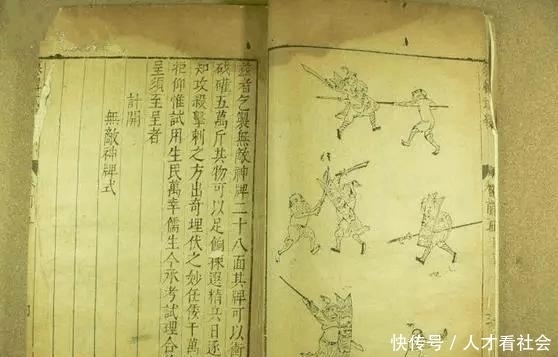 茲者乞製無敵神牌二十八面其牌可以衝
五萬斤其物可以足餉揀選精兵日逐
知攻殺擊刺之方出奇埋伏之妙任倭千萬
拒仰惟試用生民萬幸儒生今承考試理合
呈須至呈者
計開
無敵神牌式
快传号 / 人才看社会